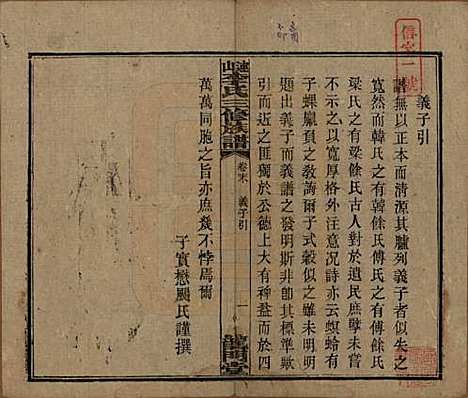 義子引
譜無以正本而清源其臚列義子者似失之
寬然而韓氏之有韓餘氏傅氏之有傅餘氏
梁氏之有梁餘氏古人對於遺民庶孽未嘗
不示之以寬厚格外注意况詩亦云螟蛉有
子蜾臝負之敎誨爾子式穀似之雖未明明
題出義子而義譜之發明斯非節其標準歟
引而進之匪獨於公德上大有裨益而於四
萬萬同胞之旨亦庶幾不悖焉爾
子實懋颺氏謹撰
李氏三修族譜
卷末
義子引
一
龍門堂
信字一號